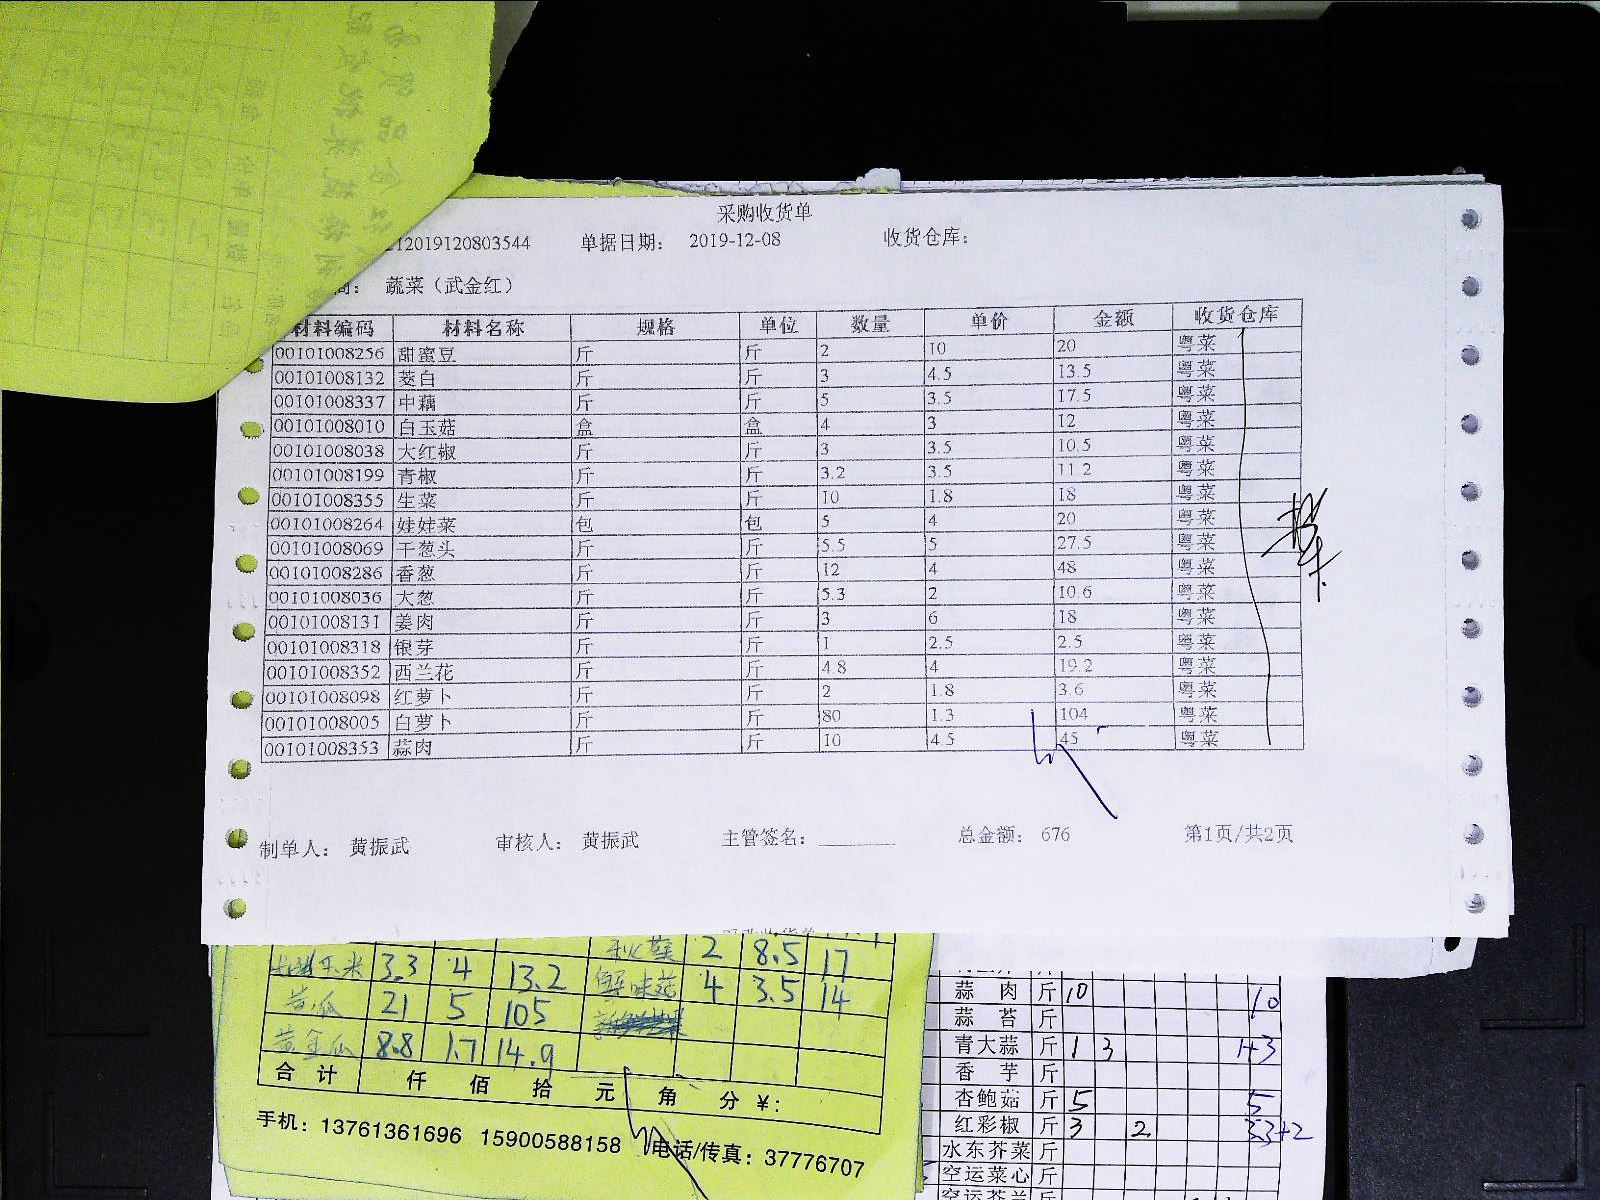 采购收货单
212019120803544 单据日期: 2019-12-08 收货仓库:
商: 蔬菜（武金红）
材料编码 材料名称 规格 单位 数量 单价 金额 收货仓库
00101008256 甜蜜豆 斤 斤 2 10 20 粤菜
00101008132 茭白 斤 斤 3 4.5 13.5 粤菜
00101008337 中藕 斤 斤 5 3.5 17.5 粤菜
00101008010 白玉菇 盒 盒 4 3 12 粤菜
00101008038 大红椒 斤 斤 3 3.5 10.5 粤菜
00101008199 青椒 斤 斤 3.2 3.5 11.2 粤菜
00101008355 生菜 斤 斤 10 1.8 18 粤菜
00101008264 娃娃菜 包 包 5 4 20 粤菜
00101008069 干葱头 斤 斤 5.5 5 27.5 粤菜
00101008286 香葱 斤 斤 12 4 48 粤菜
00101008036 大葱 斤 斤 5.3 2 10.6 粤菜
00101008131 姜肉 斤 斤 3 6 18 粤菜
00101008318 银芽 斤 斤 1 2.5 2.5 粤菜
00101008352 西兰花 斤 斤 4.8 4 19.2 粤菜
00101008098 红萝卜 斤 斤 2 1.8 3.6 粤菜
00101008005 白萝卜 斤 斤 80 1.3 104 粤菜
00101008353 蒜肉 斤 斤 10 4.5 45 粤菜
制单人: 黄振武 审核人: 黄振武 主管签名: 总金额: 676 第1页/共2页
2 8.5 17
玉米 3.3 4 13.2 蟹味菇 4 3.5 14
苦瓜 21 5 105
黄金瓜 8.8 1.7 14.9
合计 仟 佰 拾 元 角 分 ¥:
手机: 13761361696 15900588158 电话/传真: 37776707
蒜肉 斤 10 10
蒜苔 斤
青大蒜 斤 1 3 1+3
香芋 斤
杏鲍菇 斤 5 5
红彩椒 斤 3 2 3.3+2
水东芥菜 斤
空运菜心 斤
空运芥兰 斤